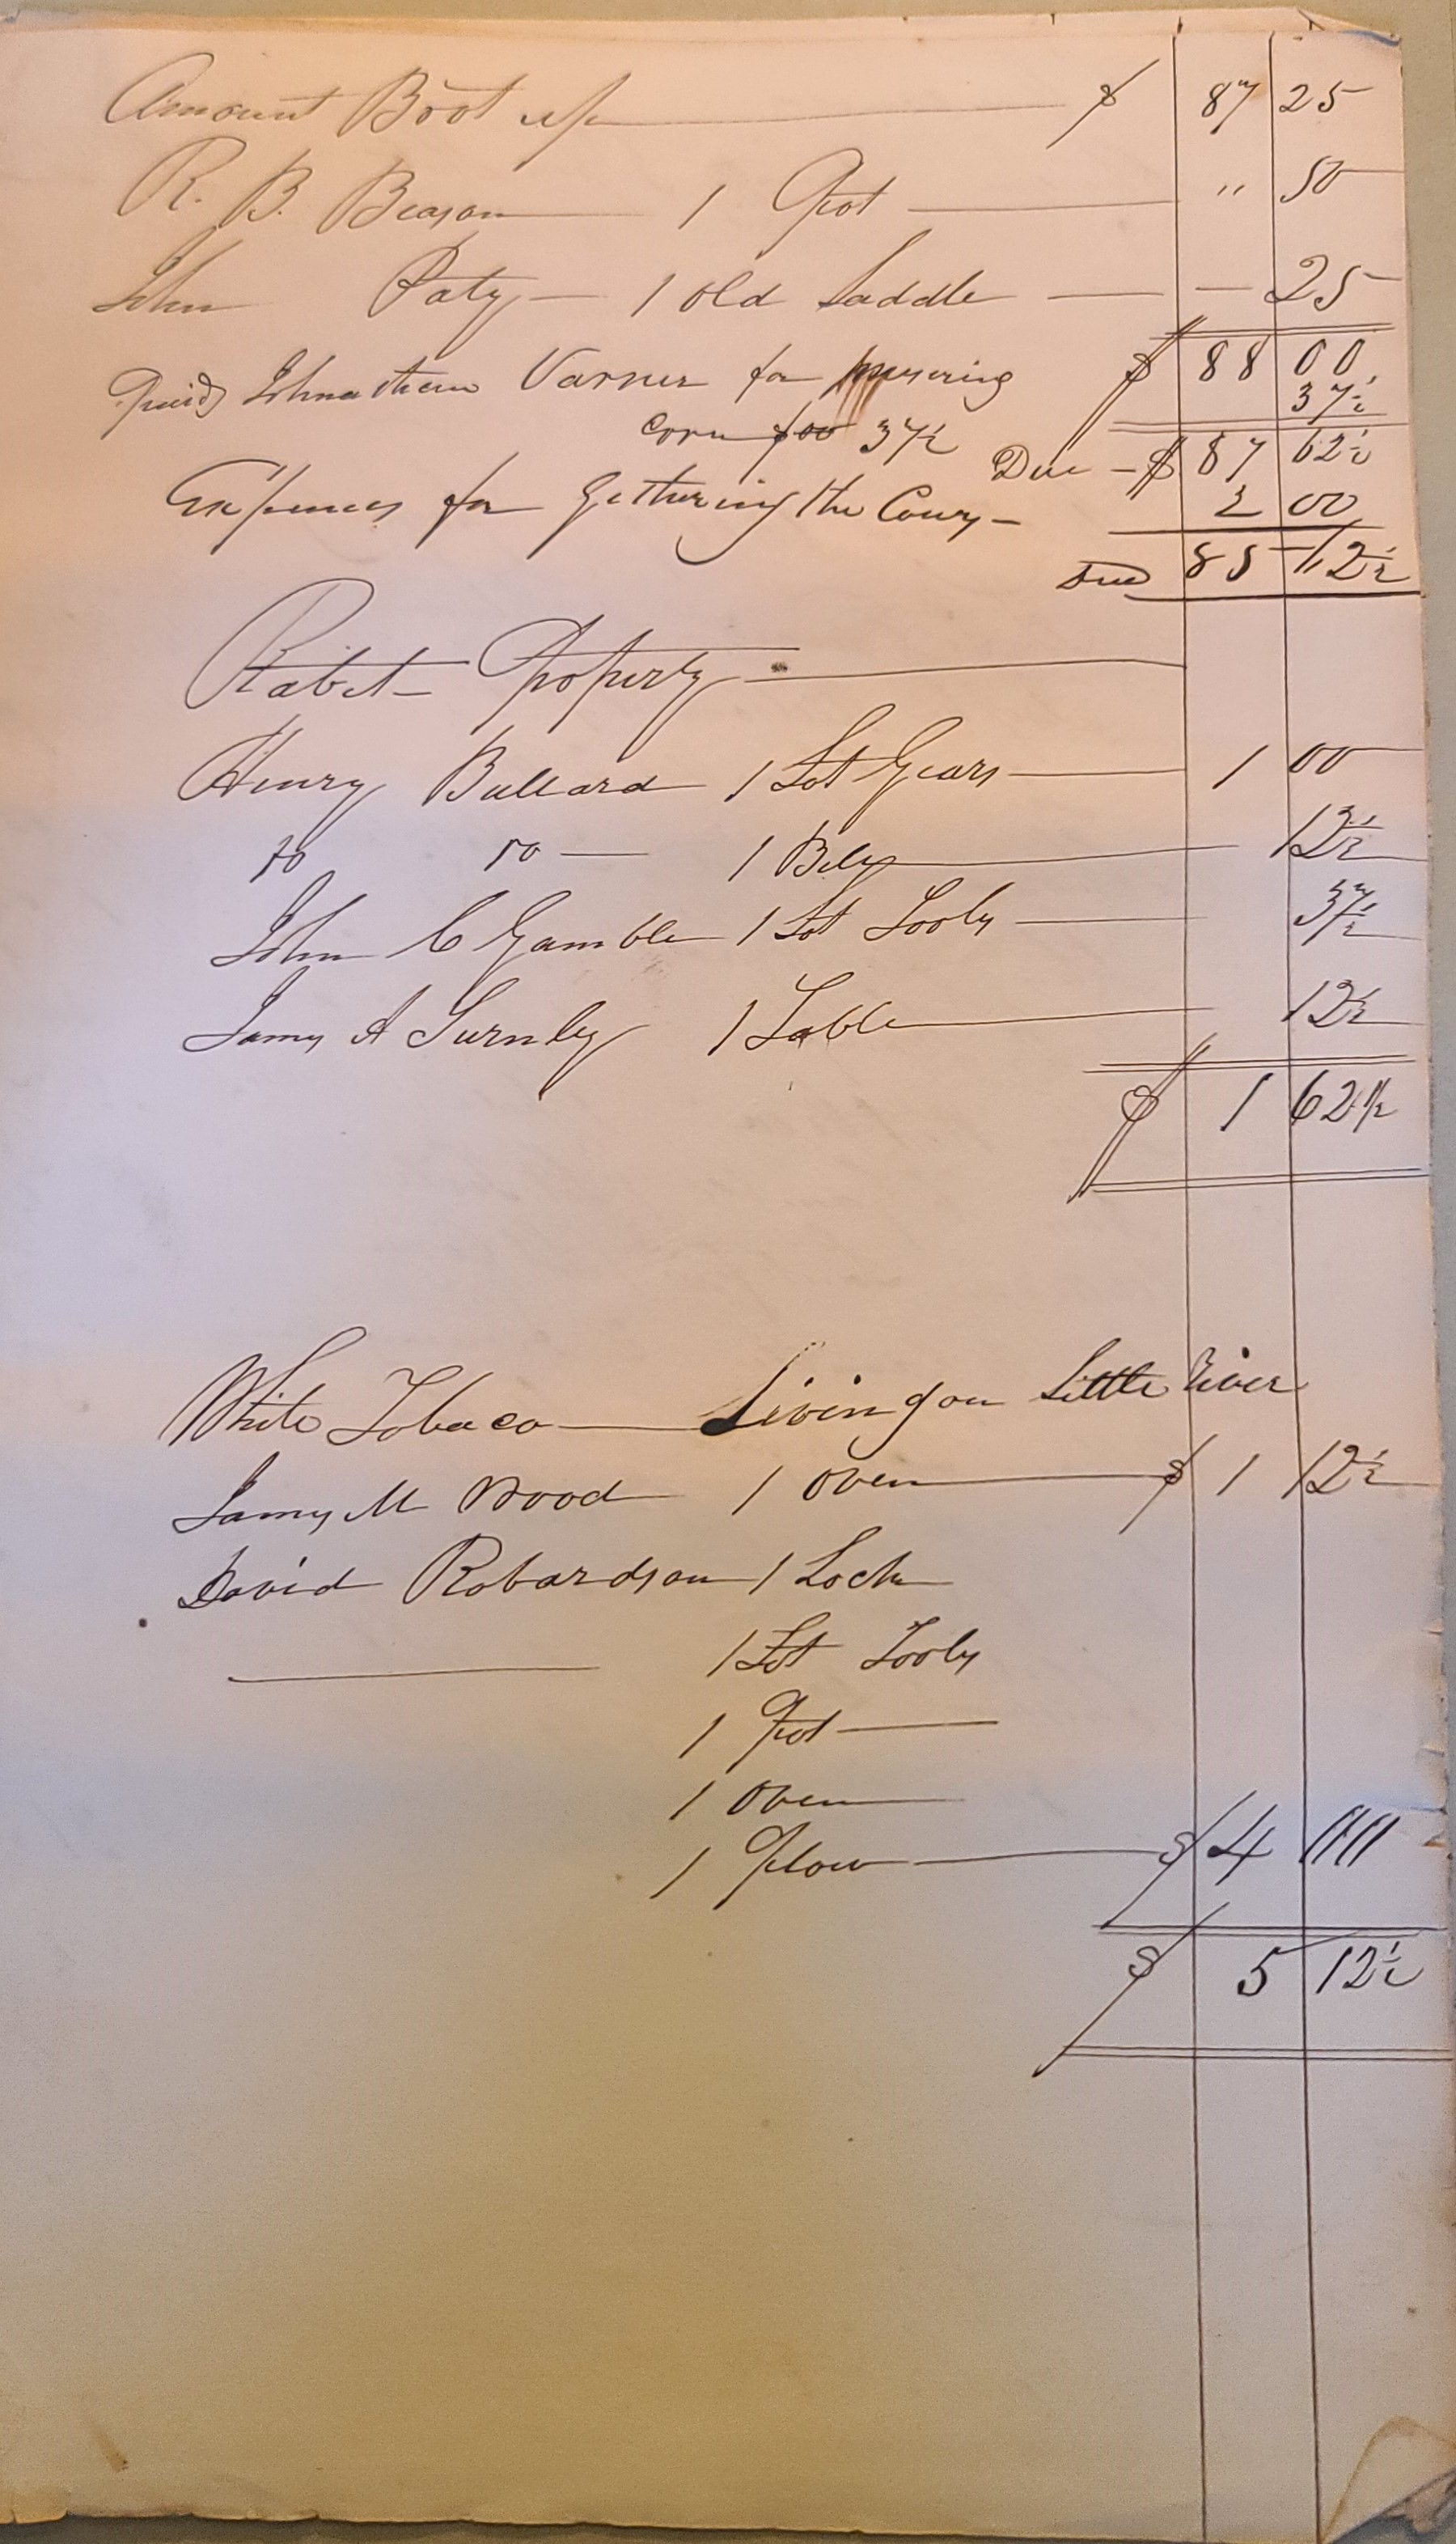 Amount Bŏŏt up $ 87 25
R. B. Beason 1 Pot " 50
John Paty — 1 old Saddle — — 25
$ 88 00
Paid Johnathan Varner for mesuring 37½
corn $00 37½ Due — $ 87 62½
Expences for Gethering the Cows — 2 00
Due 85 12½
Rabet Property
Henry Bullard 1 Lot Gears 1 00
Do Do — 1 Bely 12½
John C Gamble 1 Lot Tools 37½
James A Turnley 1 Table 12½
$ 1 62½
White Tobaco Living on Little River
James M Wood 1 oven $ 1 12½
David Robardson 1 Lock
1 Lot Tools
1 Pot
1 Oven
1 Plow $ 4 00
$ 5 12½